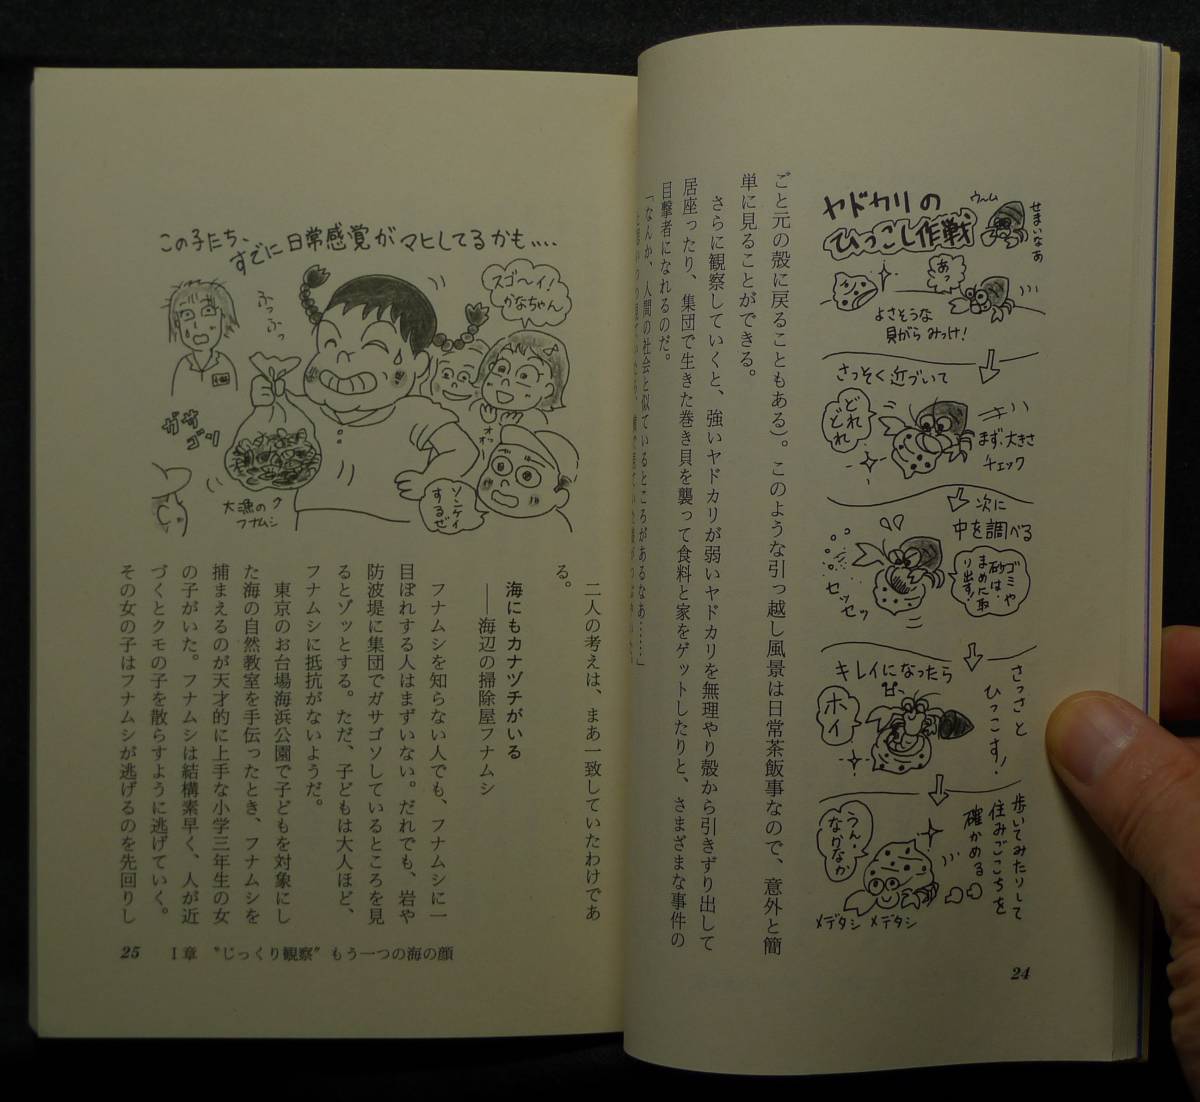 ヤドカリの
ひっこし作戦
ウ〜ム
せまいなぁ
あっ
よさそうな
貝がらみっけ！
さっそく近づいて
どれどれ
まず、大きさ
チェック
次に
中を調べる
セッセッ
ゴミや
砂は、
まめに取
り出す！
キレイになったら
ホイ
さっさと
ひっこす！
歩いてみたりして
住みごこちを
確かめる
うん、
なかなか
メデタシ メデタシ
ごと元の殻に戻ることもある）。このような引っ越し風景は日常茶飯事なので、意外と簡
単に見ることができる。
さらに観察していくと、強いヤドカリが弱いヤドカリを無理やり殻から引きずり出して
居座ったり、集団で生きた巻き貝を襲って食料と家をゲットしたりと、さまざまな事件の
目撃者になれるのだ。
「なんか、人間の社会と似ているところがあるなぁ……」
24
この子たち、
すでに日常感覚がマヒしてるかも....
ふっふっ
スゴ〜イ！
かなちゃん
ガサゴソ
オオッ
ソンケイ
するぜ
大漁の
フナムシ
二人の考えは、まあ一致していたわけであ
る。
海にもカナヅチがいる
――海辺の掃除屋フナムシ
フナムシを知らない人でも、フナムシに一
目ぼれする人はまずいない。だれでも、岩や
防波堤に集団でガサゴソしているところを見
るとゾッとする。ただ、子どもは大人ほど、
フナムシに抵抗がないようだ。
東京のお台場海浜公園で子どもを対象にし
た海の自然教室を手伝ったとき、フナムシを
捕まえるのが天才的に上手な小学三年生の女
の子がいた。フナムシは結構素早く、人が近
づくとクモの子を散らすように逃げていく。
その女の子はフナムシが逃げるのを先回りし
25 Ⅰ章 〝じっくり観察〟もう一つの海の顔